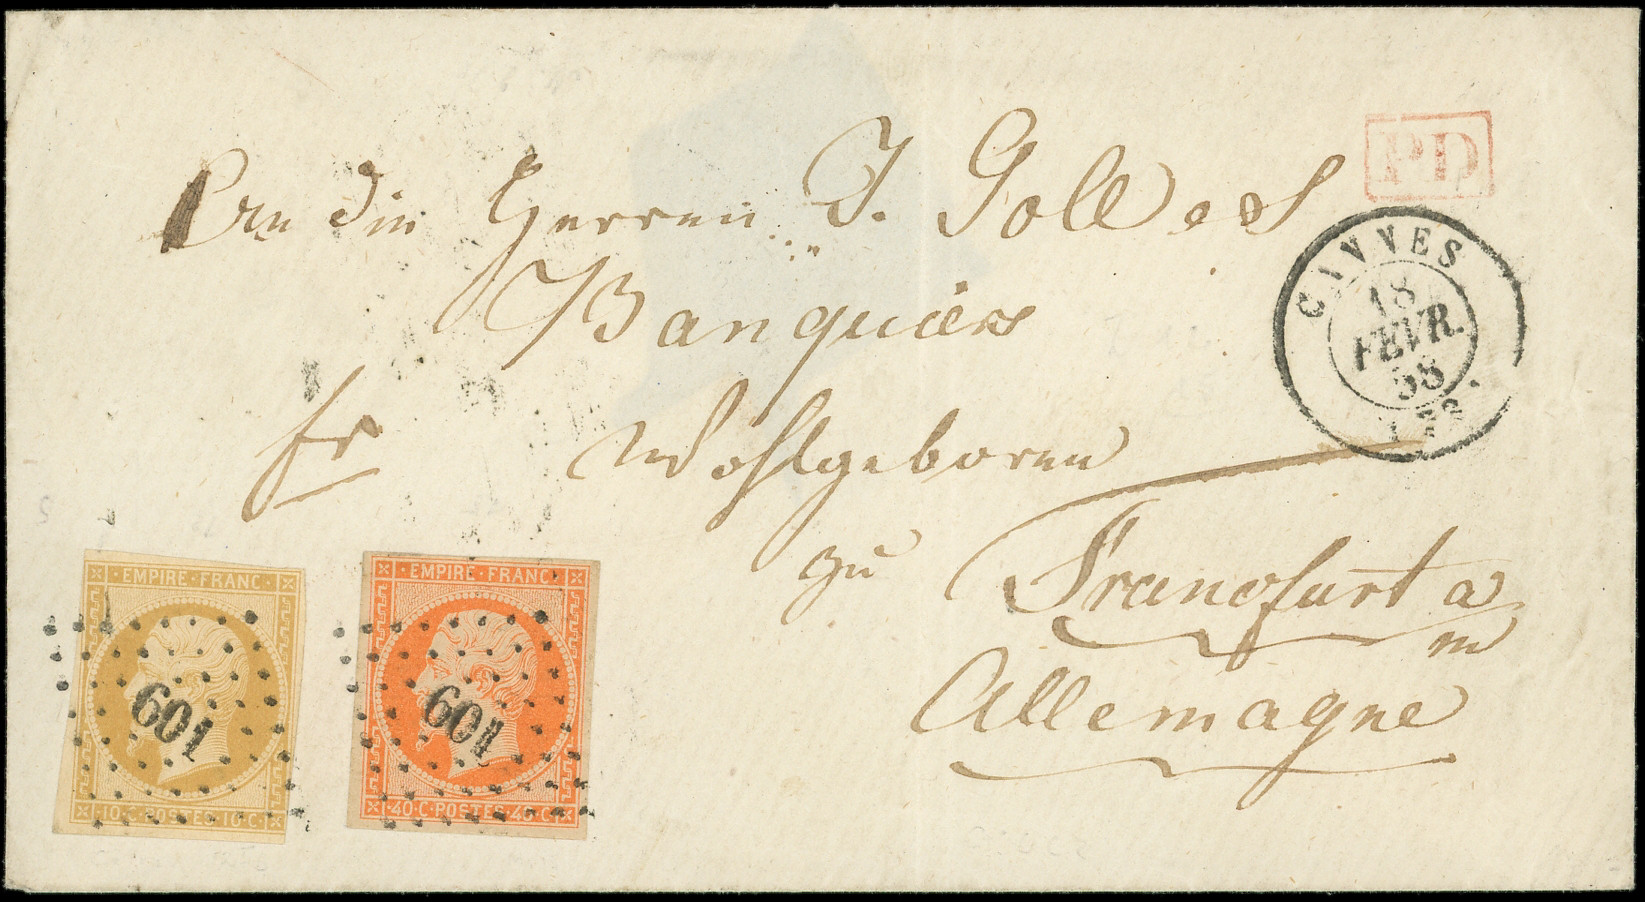 PD
An die Herren J. Goll & S
Banquiers
CANNES
18
FEVR.
58
fr
Wohlgeboren
zu Francfurt a
m
Allemagne
EMPIRE FRANC
601
10·C·POSTES·10·C·
EMPIRE FRANC
601
40·C·POSTES·40·C·